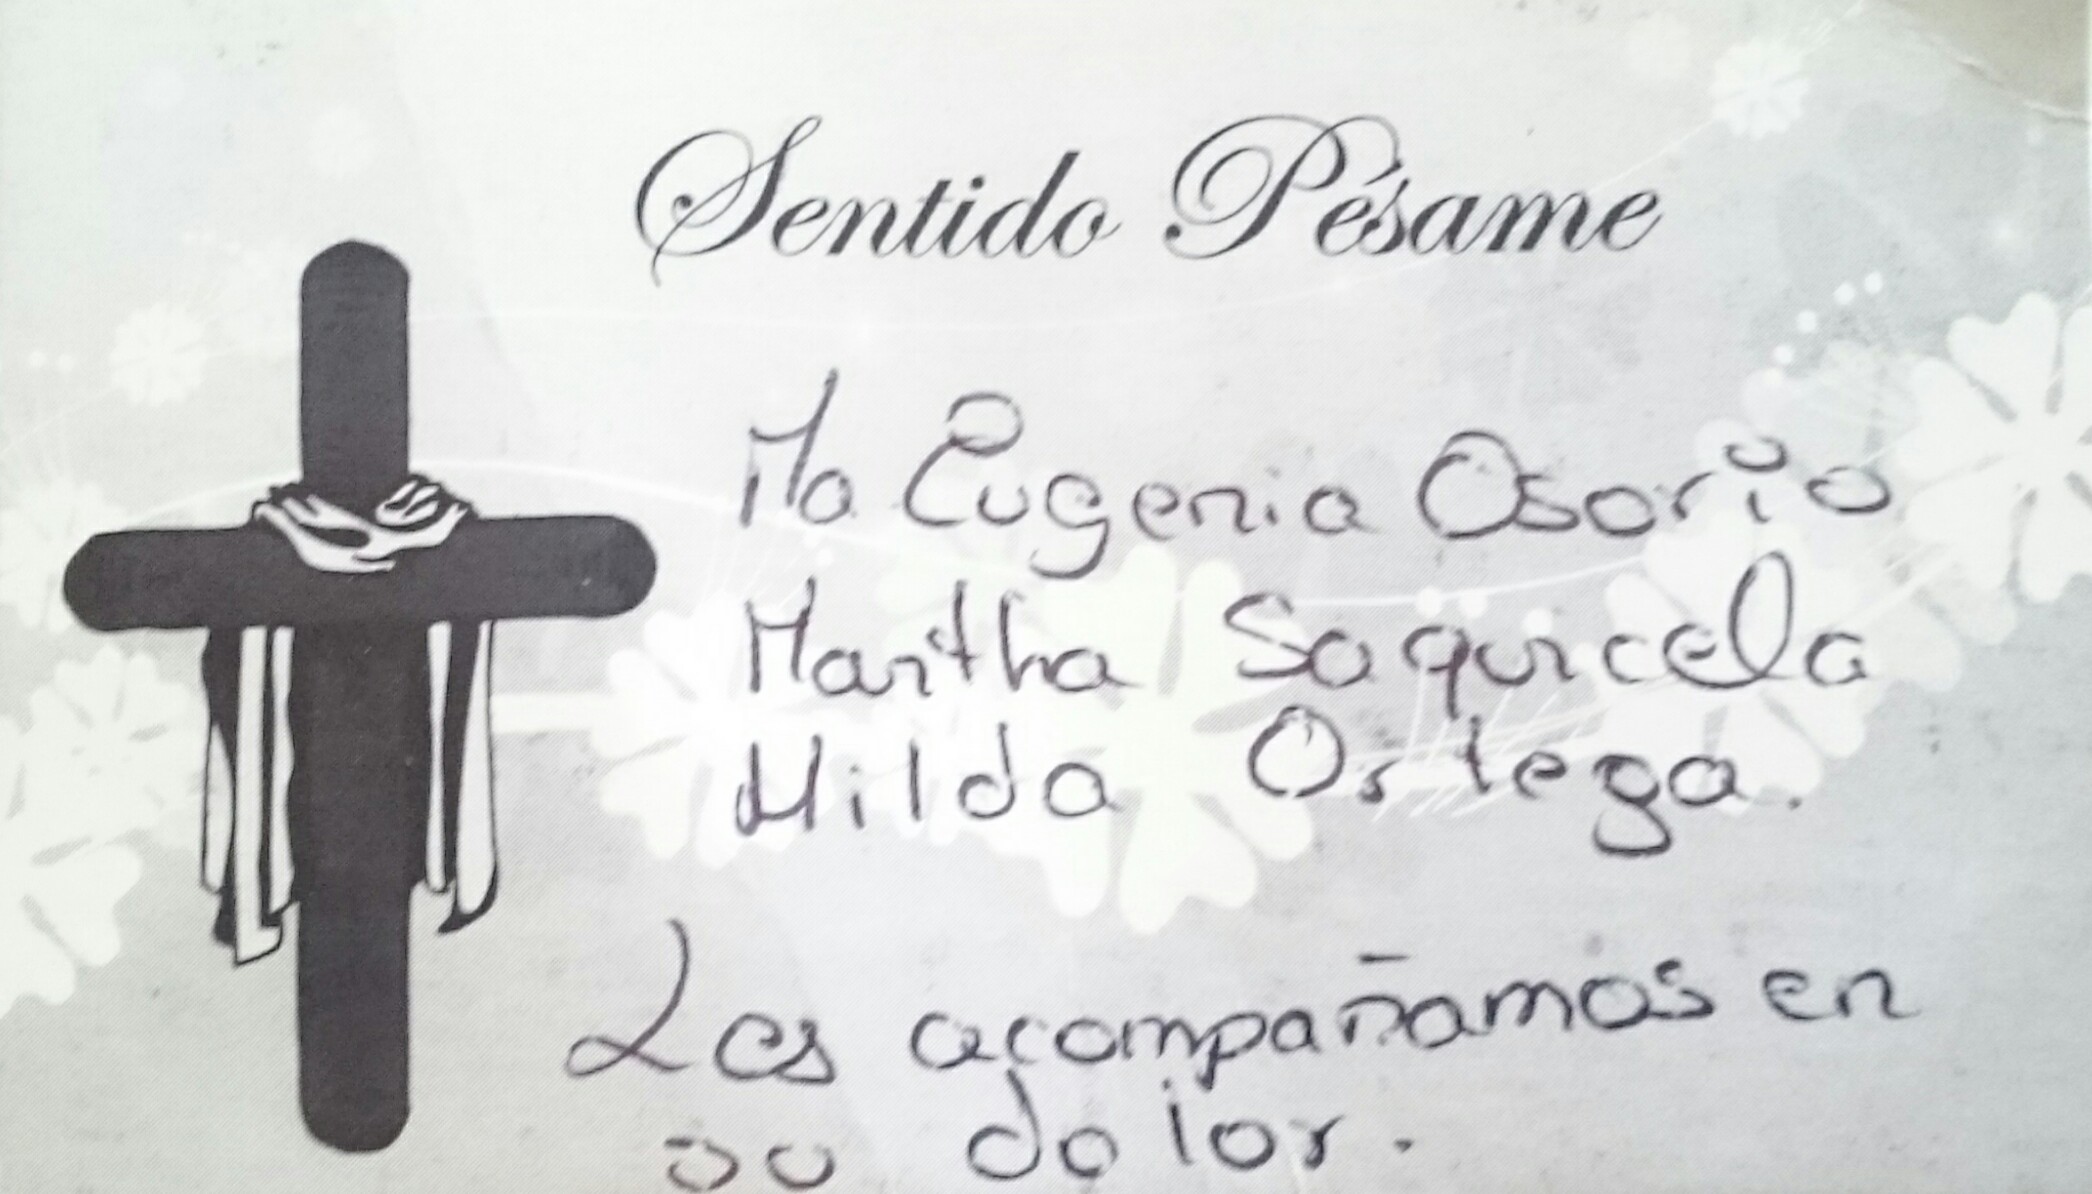 Sentido Pésame
Ma Eugenia Osorio
Martha Saquicela
Hilda Ortega.
Les acompañamos en
su dolor.